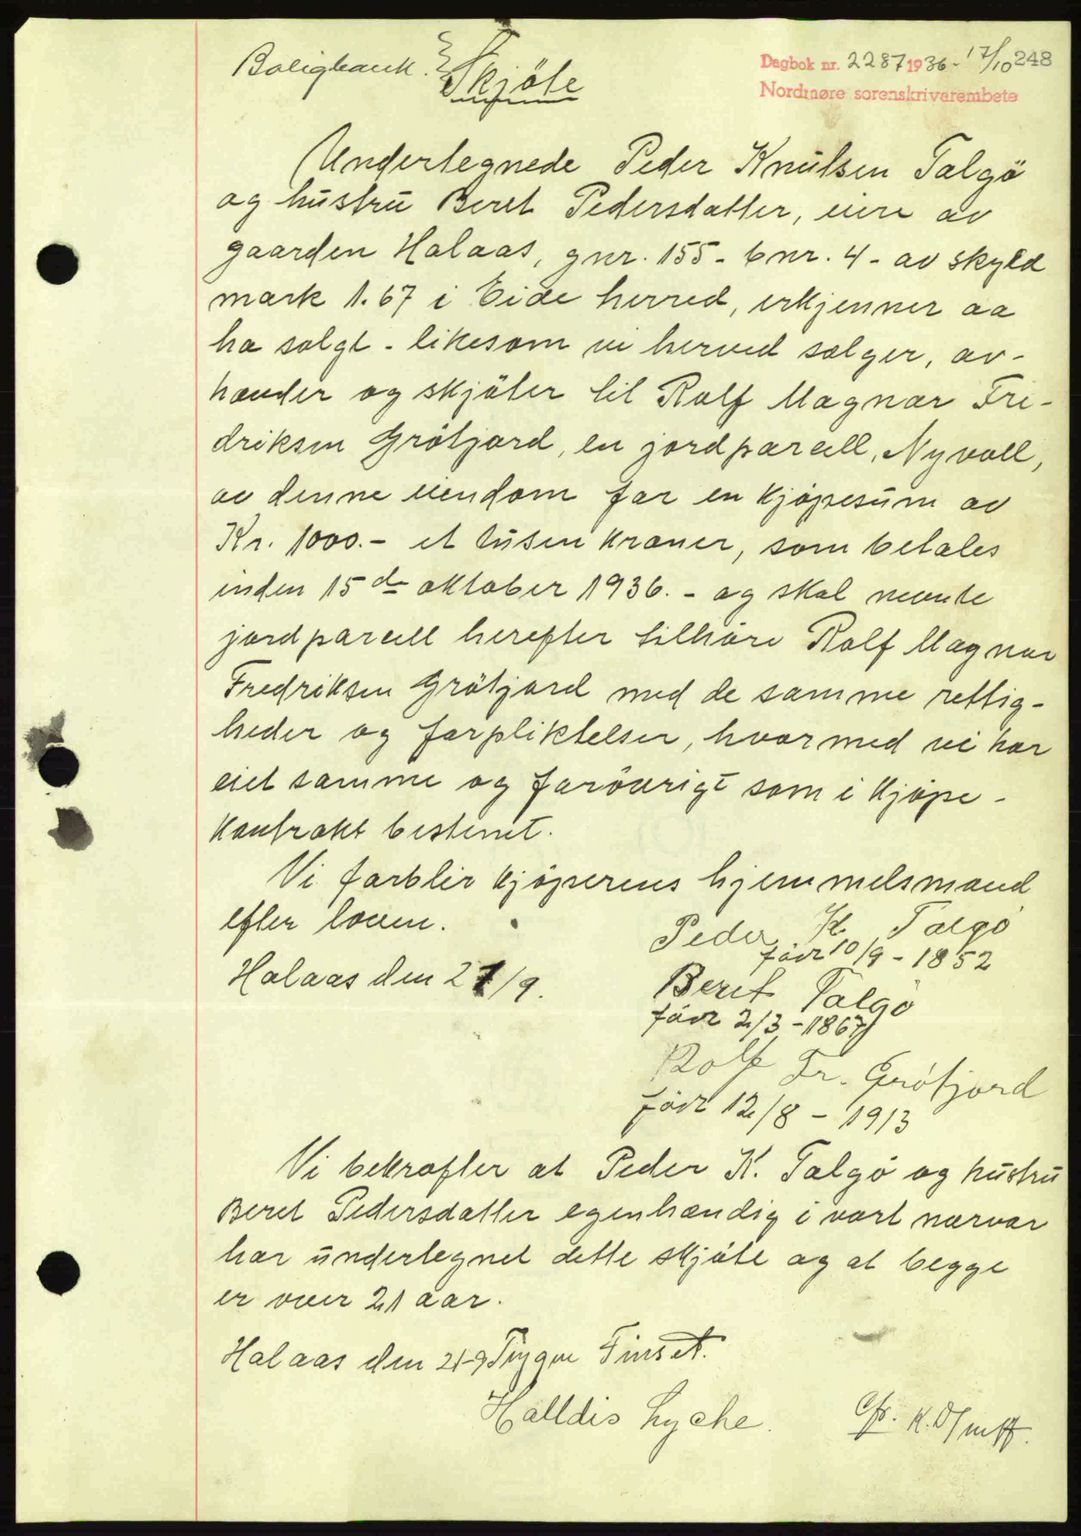 Boligbank. Skjöte
Dagbok nr. 2287 1936 - 17/10 248
Nordmøre sorenskriverembete
Undertegnede Peder Knutsen Talgö
og hustru Beret Pedersdatter, eiere av
gaarden Halaas, gnr. 155 - bnr. 4 - av skyld
mark 1.67 i Eide herred, erkjenner aa
ha solgt - likesom vi herved sælger, av-
hænder og skjöter til Rolf Magnar Fre-
driksen Gröfjord, en jordparcell, Nyvoll,
av denne eiendom for en kjöpesum av
Kr. 1000.- et tusen kroner, som betales
inden 15de oktober 1936. - og skal nevnte
jordparcell herefter tilhöre Rolf Magnar
Fredriksen Gröfjord med de samme rettig-
heder og forpliktelser, hvormed vi har
eiet samme og forövrigt som i kjöpe-
kontrakt bestemt.
Vi forblir kjöperens hjemmelsmand
efter loven.
Peder K Talgö
Halaas den 21/9.
född 10/9 - 1852
Beret Talgö
född 2/3 - 1867
Rolf Fr. Gröfjord
född 12/8 - 1913
Vi bekræfter at Peder K. Talgö og hustru
Beret Pedersdatter egenhændig i vort nærvær
har undertegnet dette skjöte og at begge
er over 21 aar.
Halaas den 21-9 Trygve Finset.
Halldis Lyche.
Cfr. K.